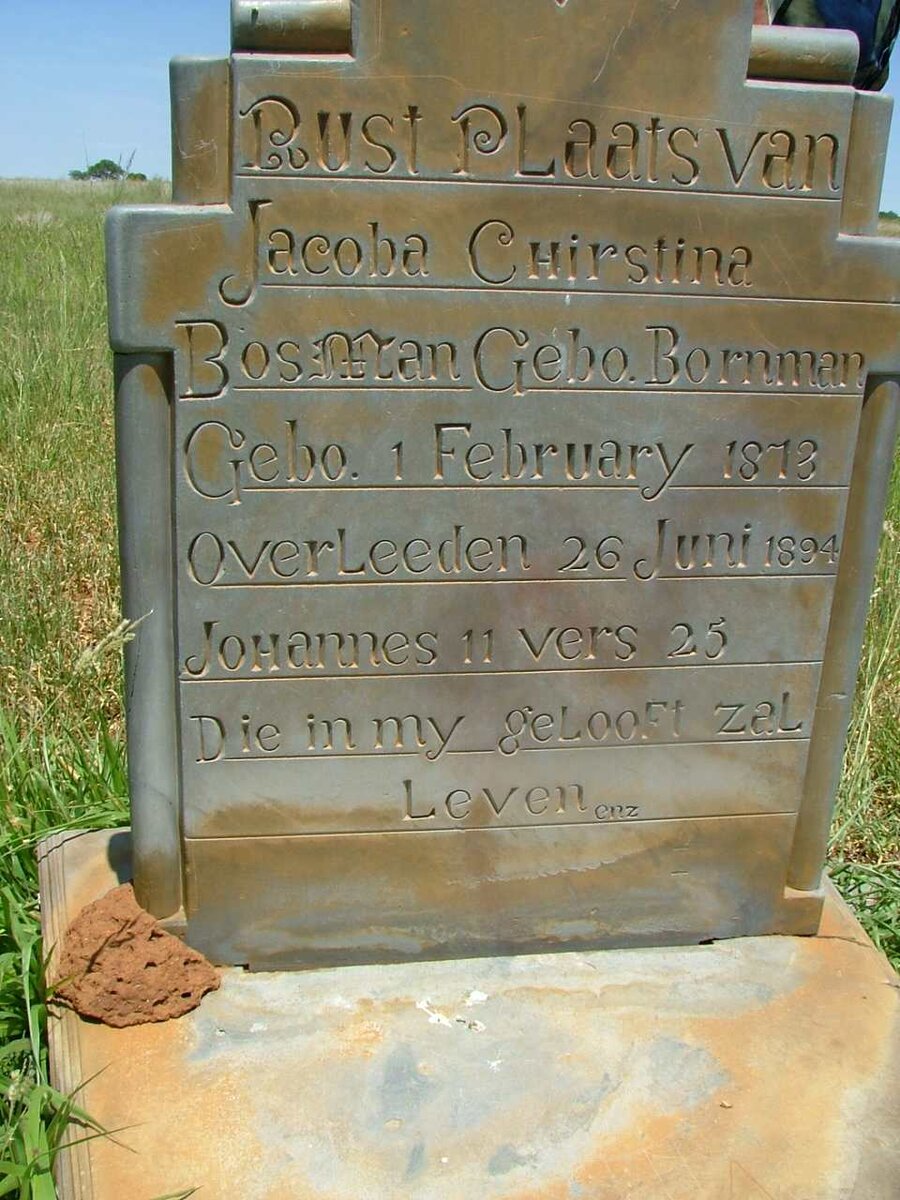 Rust Plaats van
Jacoba Chirstina
Bosman Gebo. Bornman
Gebo. 1 February 1873
Overleeden 26 Juni 1894
Johannes 11 vers 25
Die in my gelooft zal
Leven enz